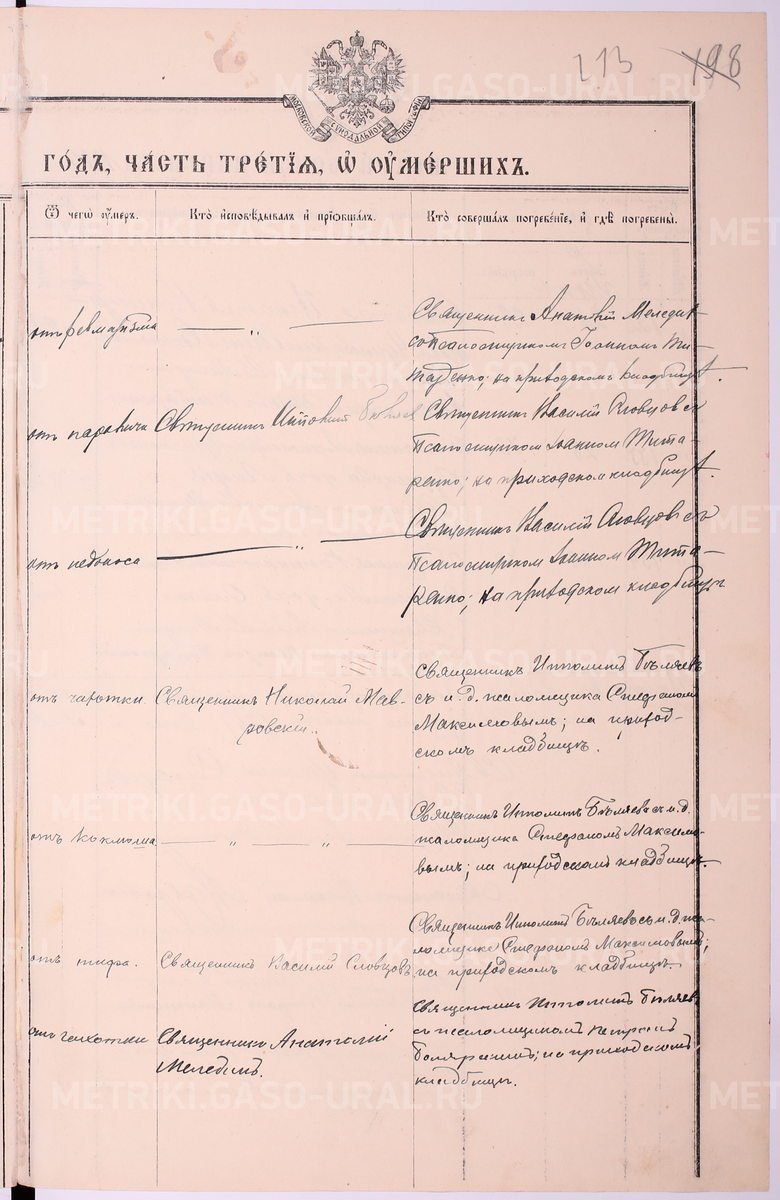 213 198
МОСКОВСКОЙ СѴНОДАЛЬНОЙ ТИПОГРАФІИ
ГОДЪ, ЧАСТЬ ТРЕТІЯ, Ѡ ОУМЕРШИХЪ.
Ѿ чегѡ оумеръ. Кто исповѣдывалъ и пріобщалъ. Кто совершалъ погребеніе, и гдѣ погребены.
отъ ревматизма — „ — Священникъ Анатолій Меледи
съ псаломщикомъ Іоанномъ Тита-
ренко; на приходскомъ кладбищѣ.
отъ Священникъ Ипполитъ Бѣляев Священникъ Василій Словцовъ съ
псаломщиком Іоанном Тита-
ренко; на приходском кладбищѣ.
отъ недоноса — „ — Священникъ Василій Словцовъ съ
псаломщиком Іоанном Тита-
ренко; на приходском кладбищѣ
отъ чахотки Священникъ Николай Мав- Священникъ Ипполитъ Бѣляевъ
ровскій. съ и. д. псаломщика Стефаномъ
Максимовымъ; на приход-
скомъ кладбищѣ.
отъ коклюша — „ — „ — Священникъ Ипполитъ Бѣляевъ съ и. д.
псаломщика Стефаномъ Максимо-
вымъ; на приходскомъ кладбищѣ.
отъ тифа. Священникъ Василій Словцовъ Священникъ Ипполитъ Бѣляевъ съ и. д. пса-
ломщика Стефаномъ Максимовымъ;
на приходскомъ кладбищѣ.
отъ чахотки Священникъ Анатолій Священникъ Ипполитъ Бѣляев
Мелединъ. съ псаломщикомъ Петромъ
на приходскомъ
кладбищѣ.
METRIKI.GASO-URAL.RU